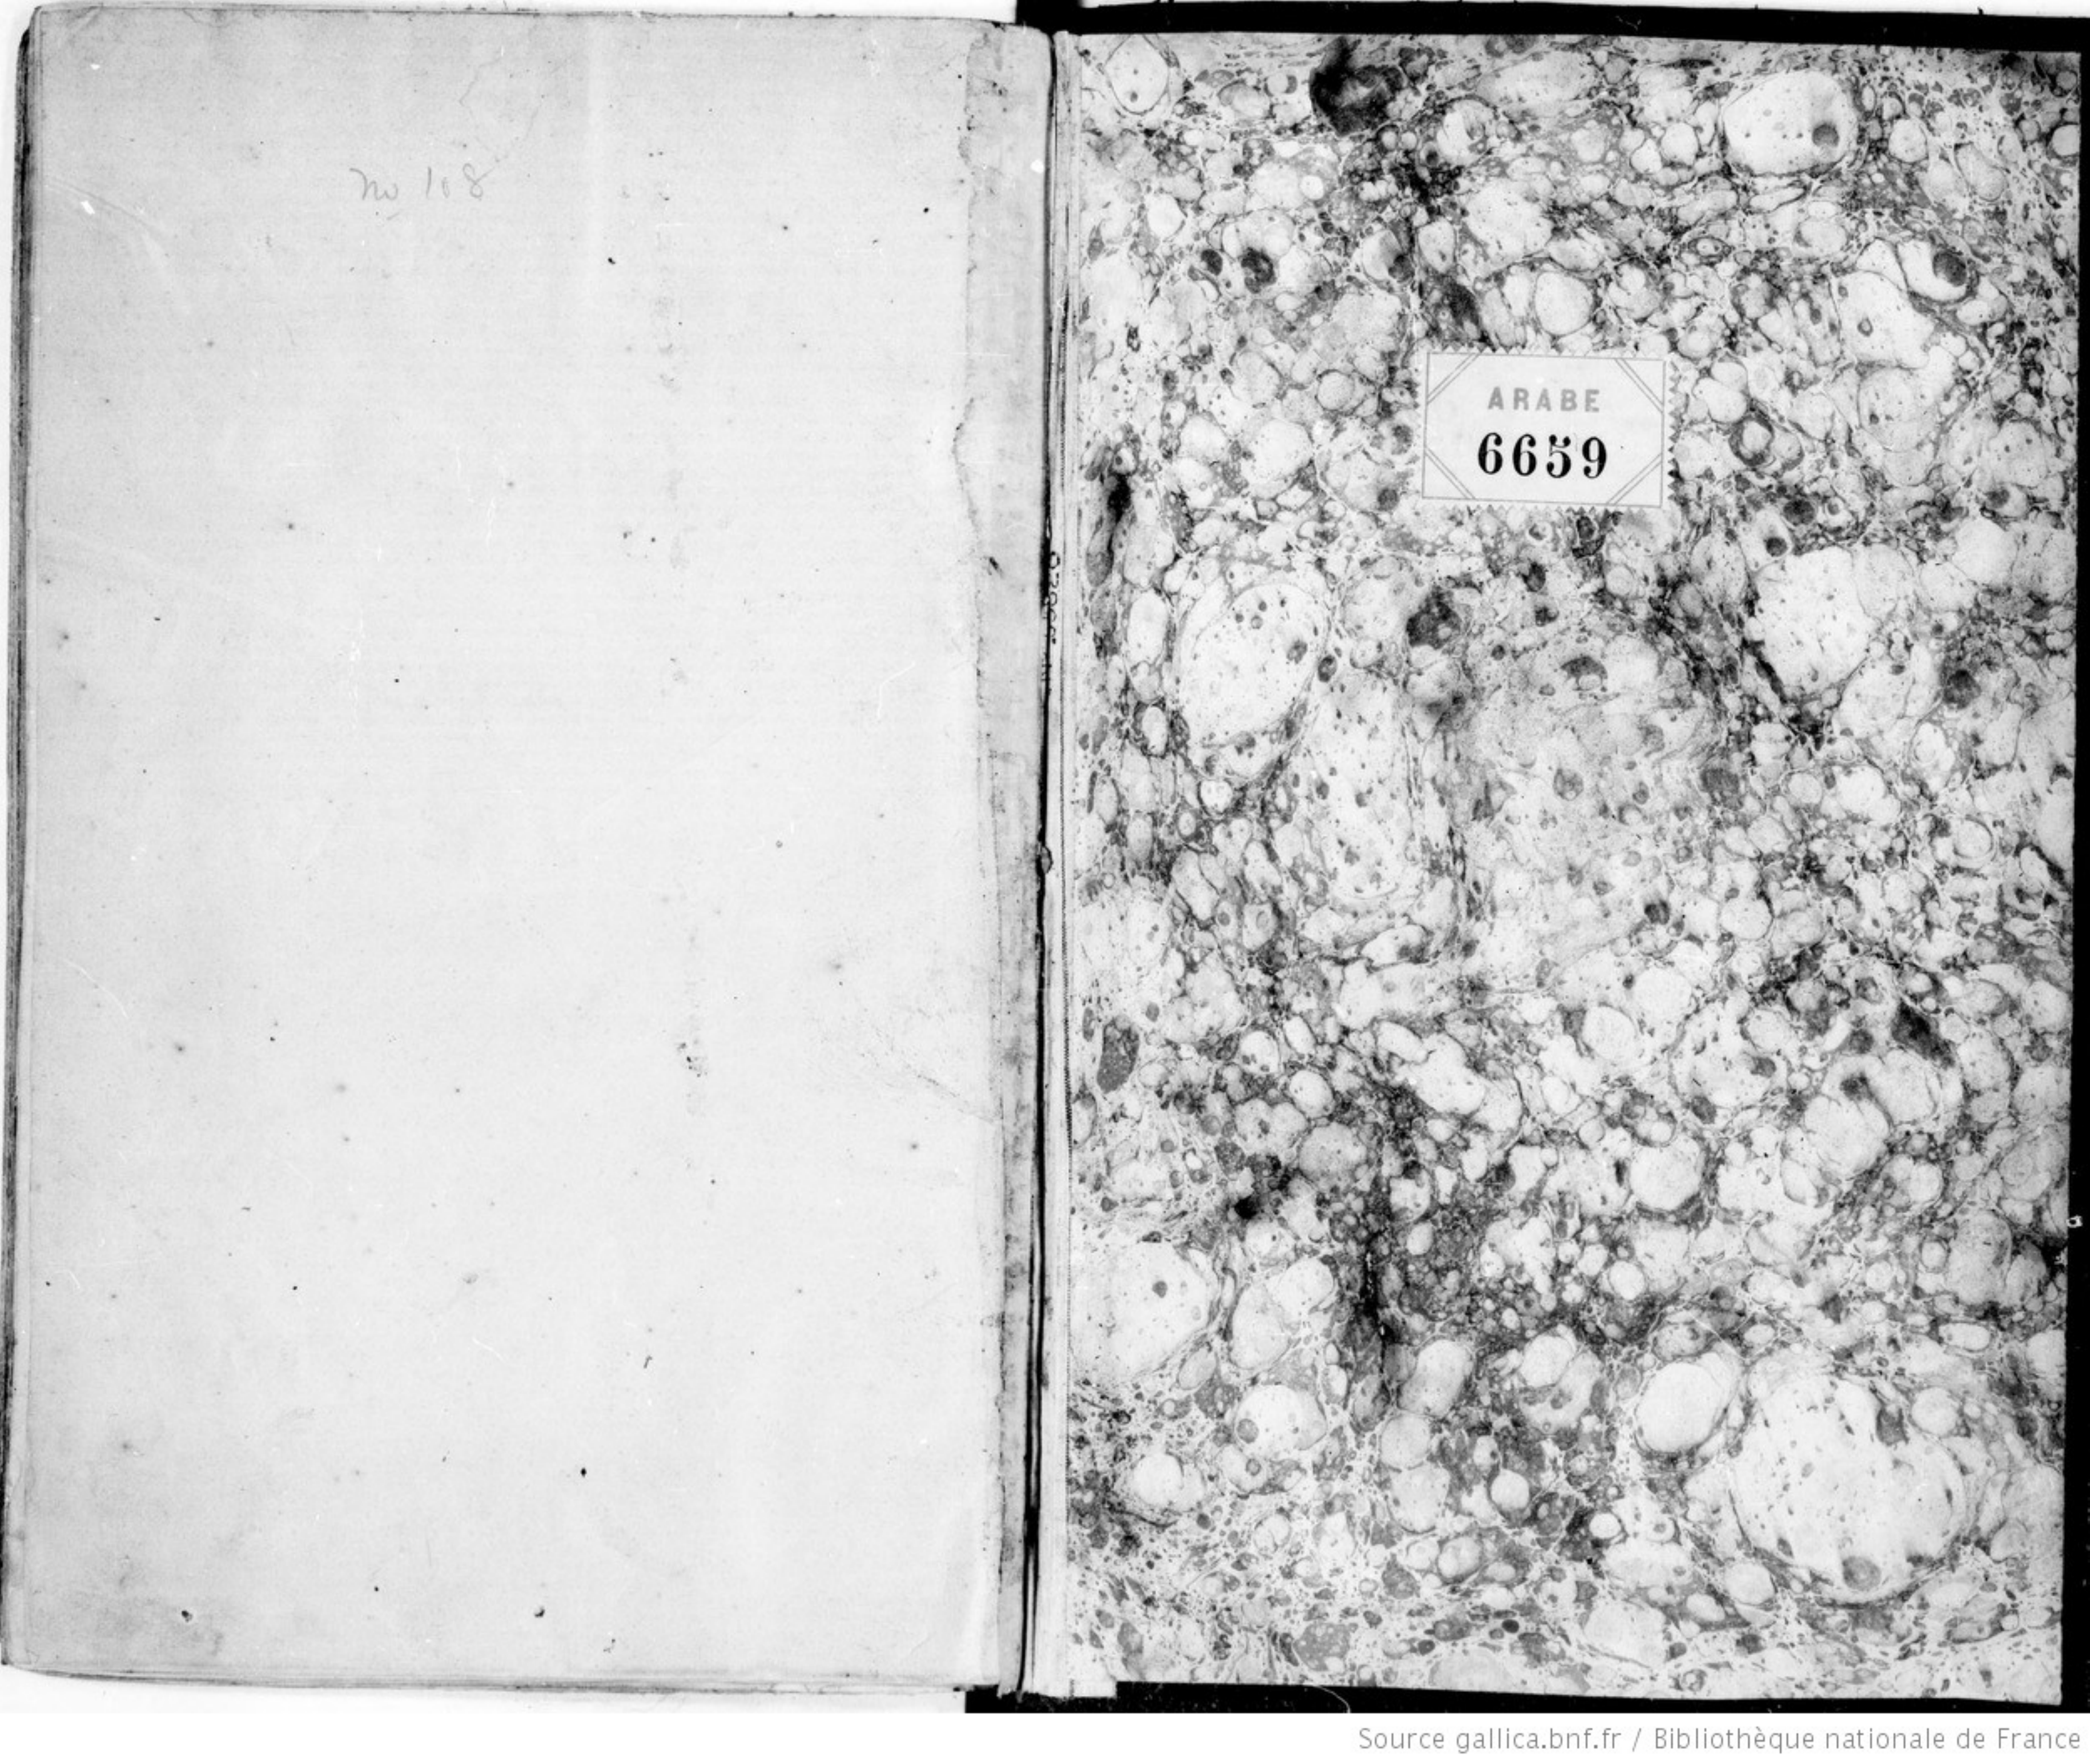 no 108
ARABE
6659
Source gallica.bnf.fr / Bibliothèque nationale de France